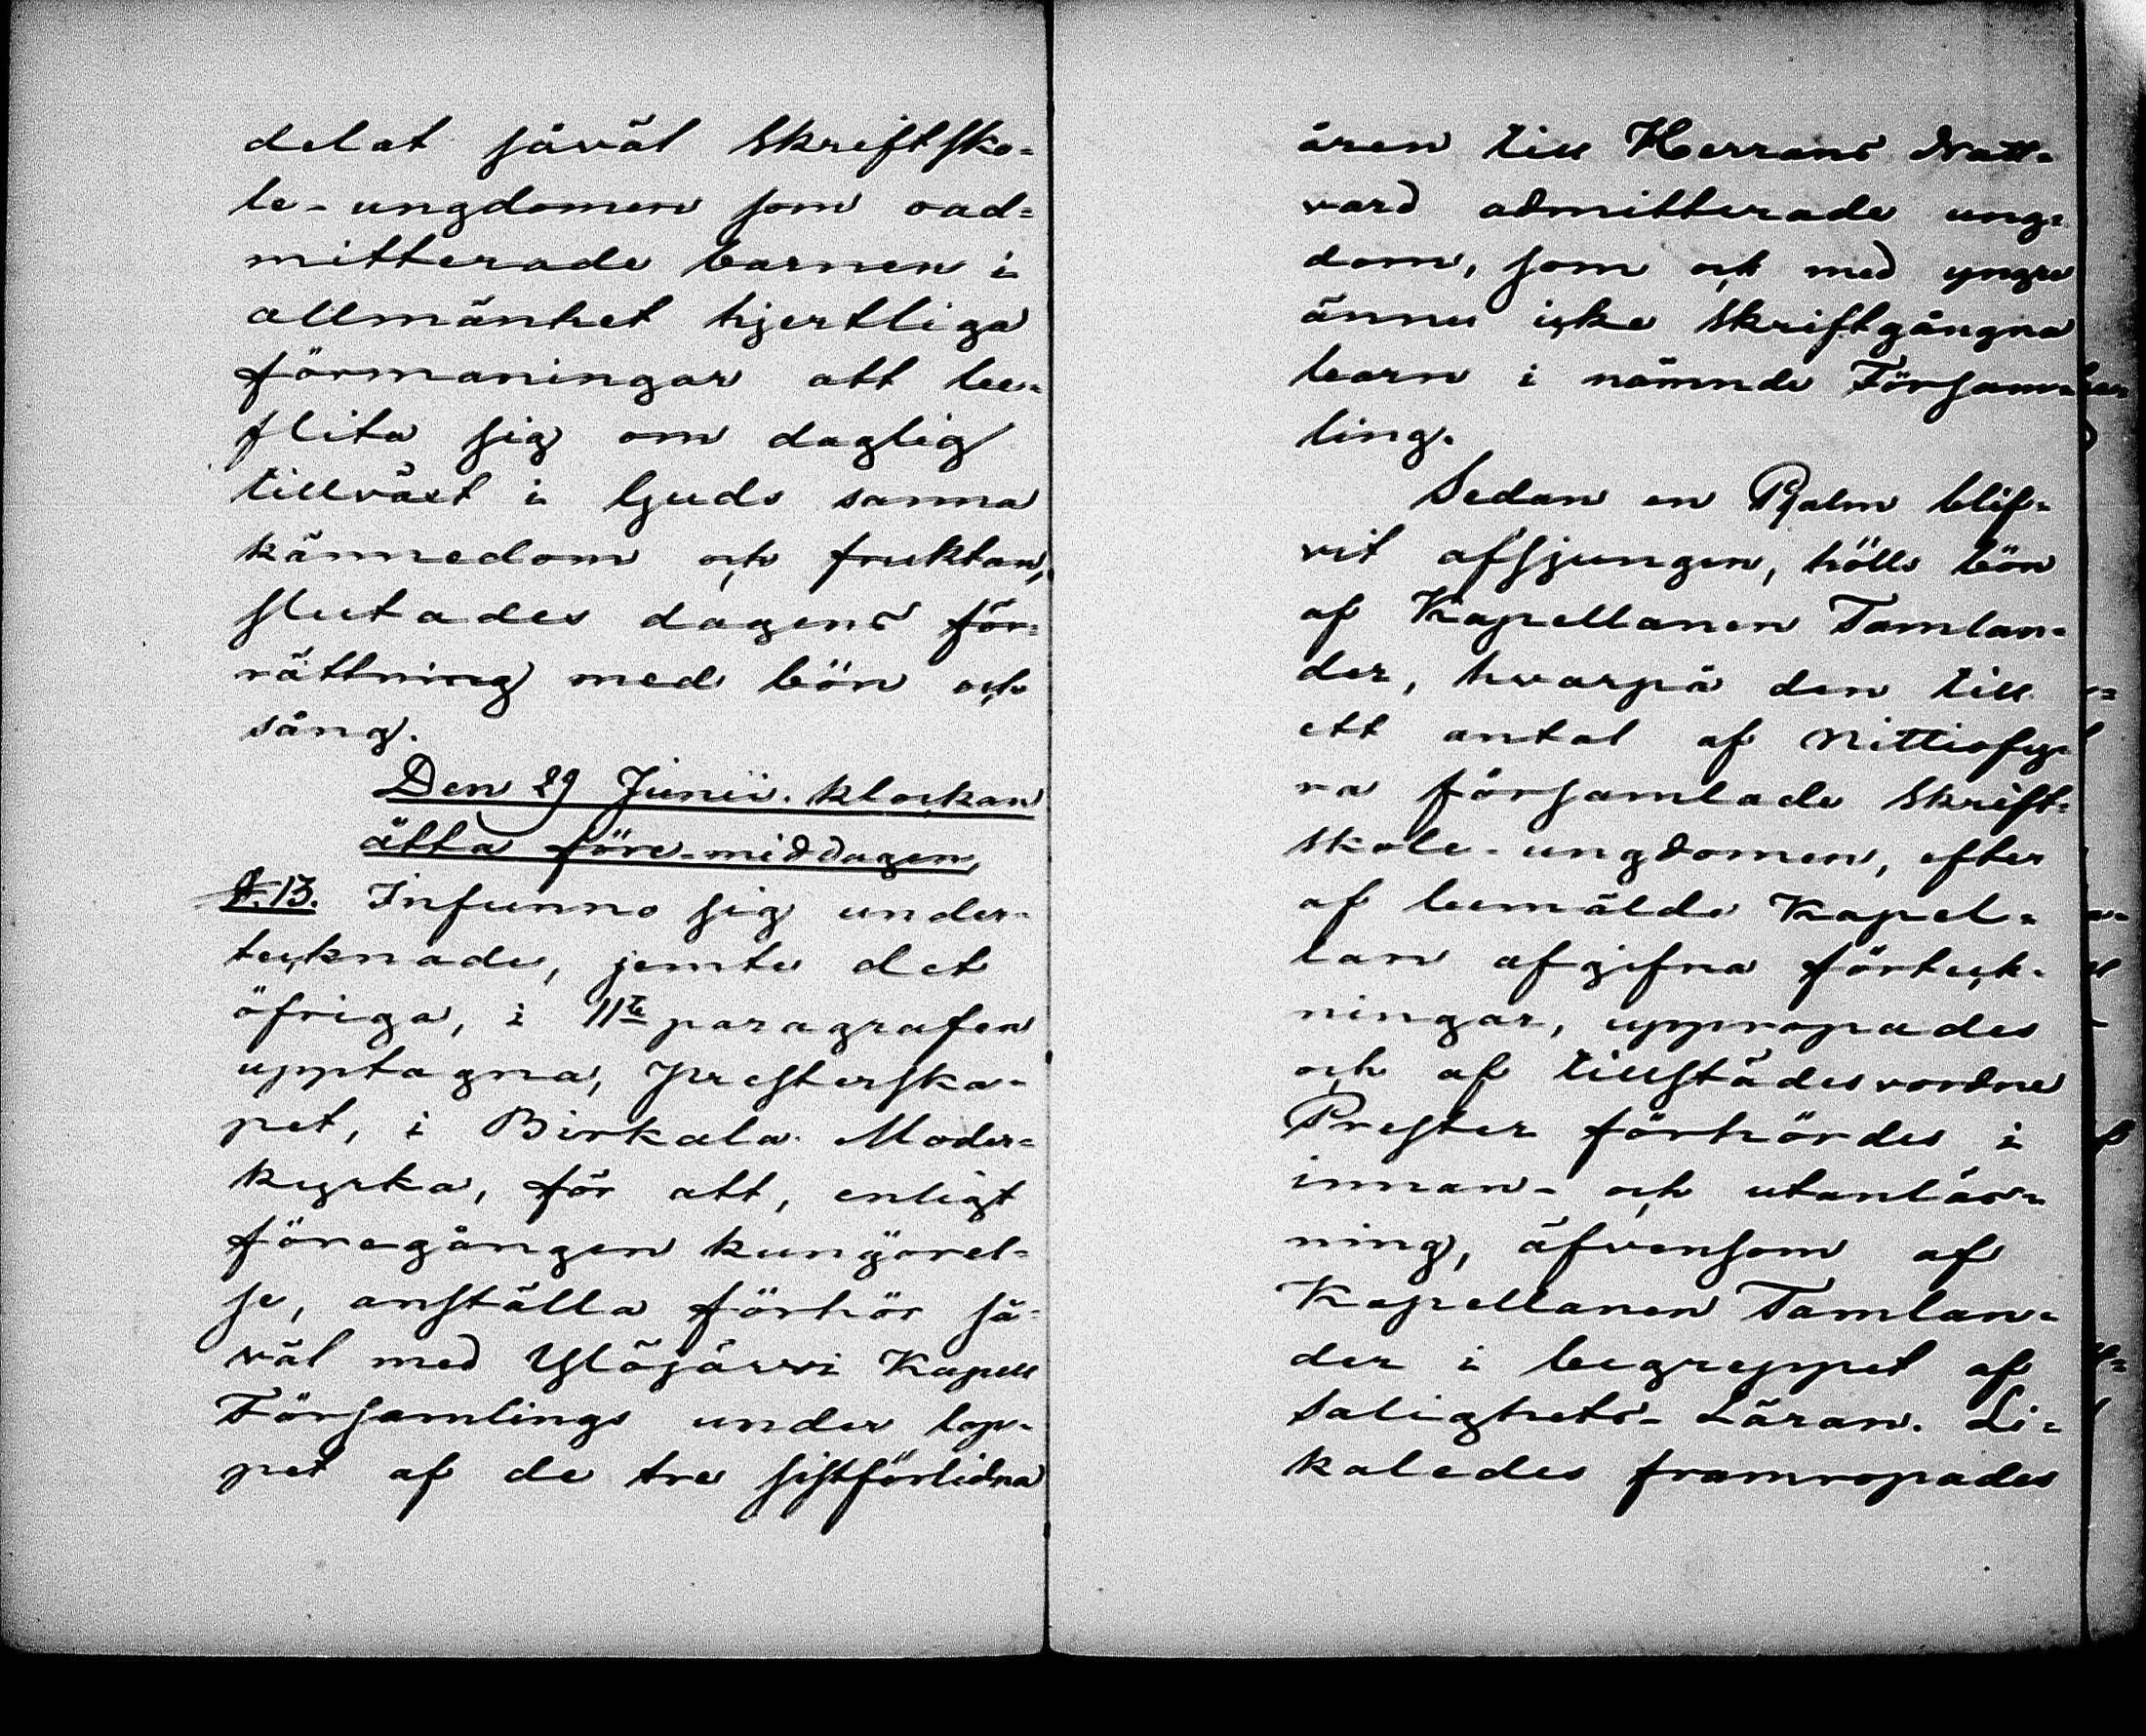 delat såväl Skriftsko=
le-ungdomen som oad=
mitterade barnen i
allmänhet hjertliga
förmaningar att be=
flita sig om daglig
tillväxt i Guds sanna
kännedom och fruktan,
slutades dagens för=
rättning med bön och
sång.
Den 29 Junii. klockan
åtta före-middagen,
§.13. Infunno sig under-
tecknade, jemte det
öfriga, i 11te paragrafen
upptagna, presterska-
pet, i Birkala Moder=
kyrka, för att, enligt
föregången kungörel-
se, anställa förhör så=
väl med Ylöjärvi Kapell
Församlings under lop-
pet af de tre sistförlidna
åren till Herrans Natt=
vard admitterade ung=
dom, som och med yngre
ännu icke Skriftgångna
barn i nämnde Försam=
ling.
Sedan en Psalm blif=
vit afsjungen, hölls bön
af Kapellanen Tamlan=
der, hvarpå den till
ett antal af nittiofy=
ra församlade Skrift=
skole-ungdomen, efter
af bemälde Kapel=
lan afgifna förteck-
ningar, uppropades
och af tillstädesvordne
Prester förhördes i
innan- och utanläs=
ning, äfvensom af
Kapellanen Tamlan=
der i begreppet af
Salighets-Läran. Li=
kaledes framropades